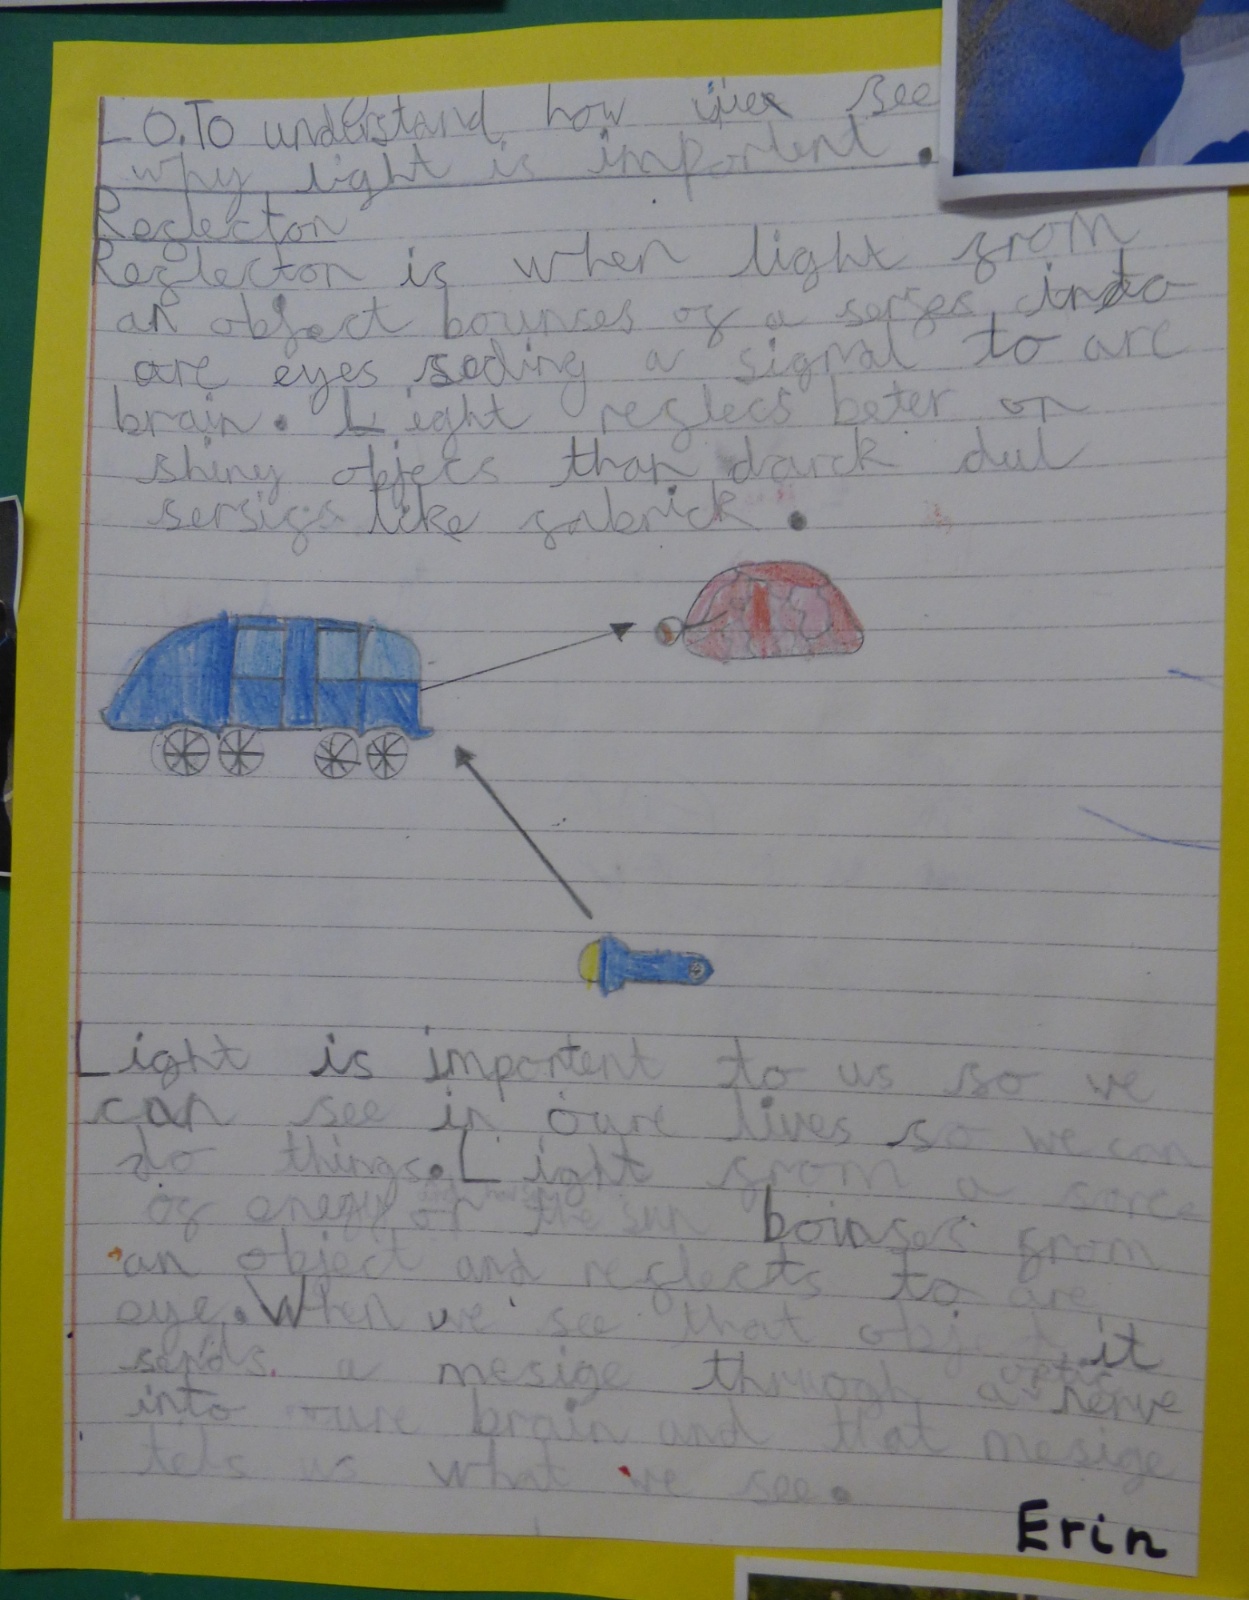 L O. To understand how we see
why light is importent.
Reflecton
Reflecton is when light from
an object bounses of a serfes into
are eyes seding a signal to are
brain. Light reflecs beter on
shiny objecs than darck dul
sersifs like fabrick.
Light is importent to us so we
can see in oure lives so we can
do things. Light from a sorce
of enegy or the sun bounses from
an object and reflects to are
eye. When we see that object it
sends a mesige through a optic nerve
into oure brain and that mesige
tels us what we see.
Erin